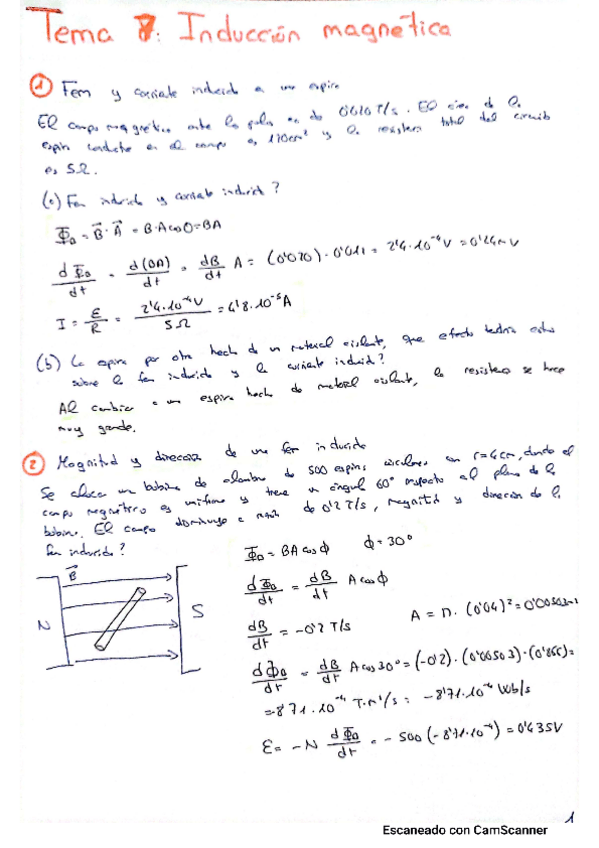 Tema 8: Inducción magnética
1 Fem y corriente inducida a una espira
El campo magnético entre los polos es de 0'020 T/s. El área de la
espira conductora en el campo es 120cm² y la resistencia total del circuito
es 5Ω.
(a) Fem inducida y corriente inducida?
Φ_B = B⃗·A⃗ = B·A cosθ = BA
dΦ_B/dt = d(BA)/dt = dB/dt A = (0'020)·0'012 = 2'4·10⁻⁴ V = 0'24mV
I = ε/R = 2'4·10⁻⁴V/5Ω = 4'8·10⁻⁵A
(b) La espira por otra hecha de un material aislante, que efecto tendría esto
sobre la fem inducida y la corriente inducida?
Al cambiar a una espira hecha de material aislante, la resistencia se hace
muy grande.
2 Magnitud y dirección de una fem inducida
Se coloca una bobina de alambre de 500 espiras circulares con r=4cm, donde el
campo magnético es uniforme y tiene un ángulo 60° respecto al plano de la
bobina. El campo disminuye a razón de 0'2 T/s, magnitud y dirección de la
fem inducida?
Φ_B = BA cosϕ ϕ = 30°
dΦ_B/dt = dB/dt A cosϕ
dB/dt = -0'2 T/s
A = π·(0'04)² = 0'00503
dΦ_B/dt = dB/dt A cos30° = (-0'2)·(0'00503)·(0'866) =
= -8'71·10⁻⁴ T·m²/s = -8'71·10⁻⁴ Wb/s
ε = -N dΦ_B/dt = -500(-8'71·10⁻⁴) = 0'435V
B⃗
N
S
1
Escaneado con CamScanner